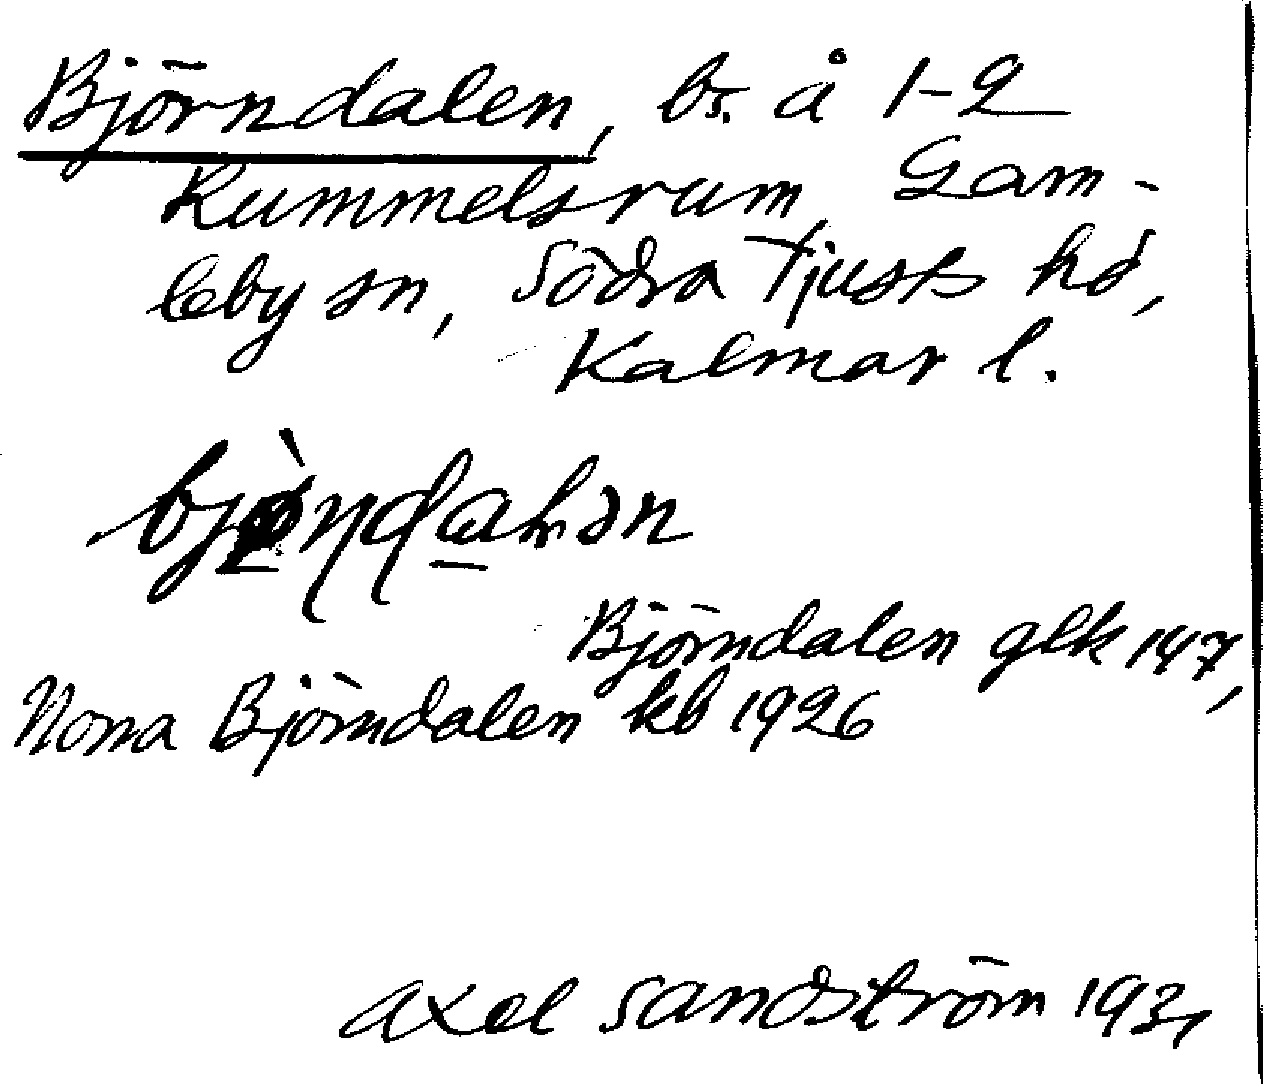 Björndalen, bs. å 1-2
Rummelsrum, Gam-
leby sn, Södra Tjusts hd,
Kalmar l.
Björndalen glk 147,
Norra Björndalen kb 1926
Axel Sandström 1931